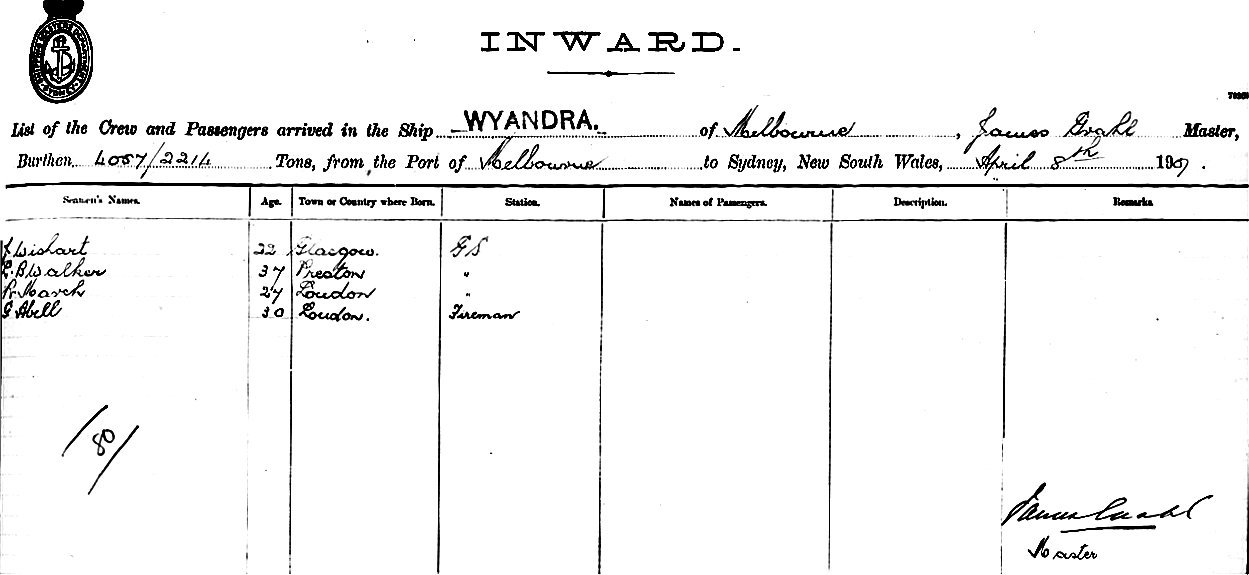 SHIPPING MASTERS DEPARTMENT SYDNEY
INWARD.
List of the Crew and Passengers arrived in the Ship WYANDRA. of Melbourne, James Grahl Master,
Burthen 4057/2214 Tons, from the Port of Melbourne to Sydney, New South Wales, April 8th 1907.
Seamen's Names. Age. Town or Country where Born. Station. Names of Passengers. Description. Remarks
J Wishart 22 Glasgow. G S
E. B Walker 37 Preston "
R. March 27 London "
G Abell 30 London. Fireman
/80/
James Grahl
Master